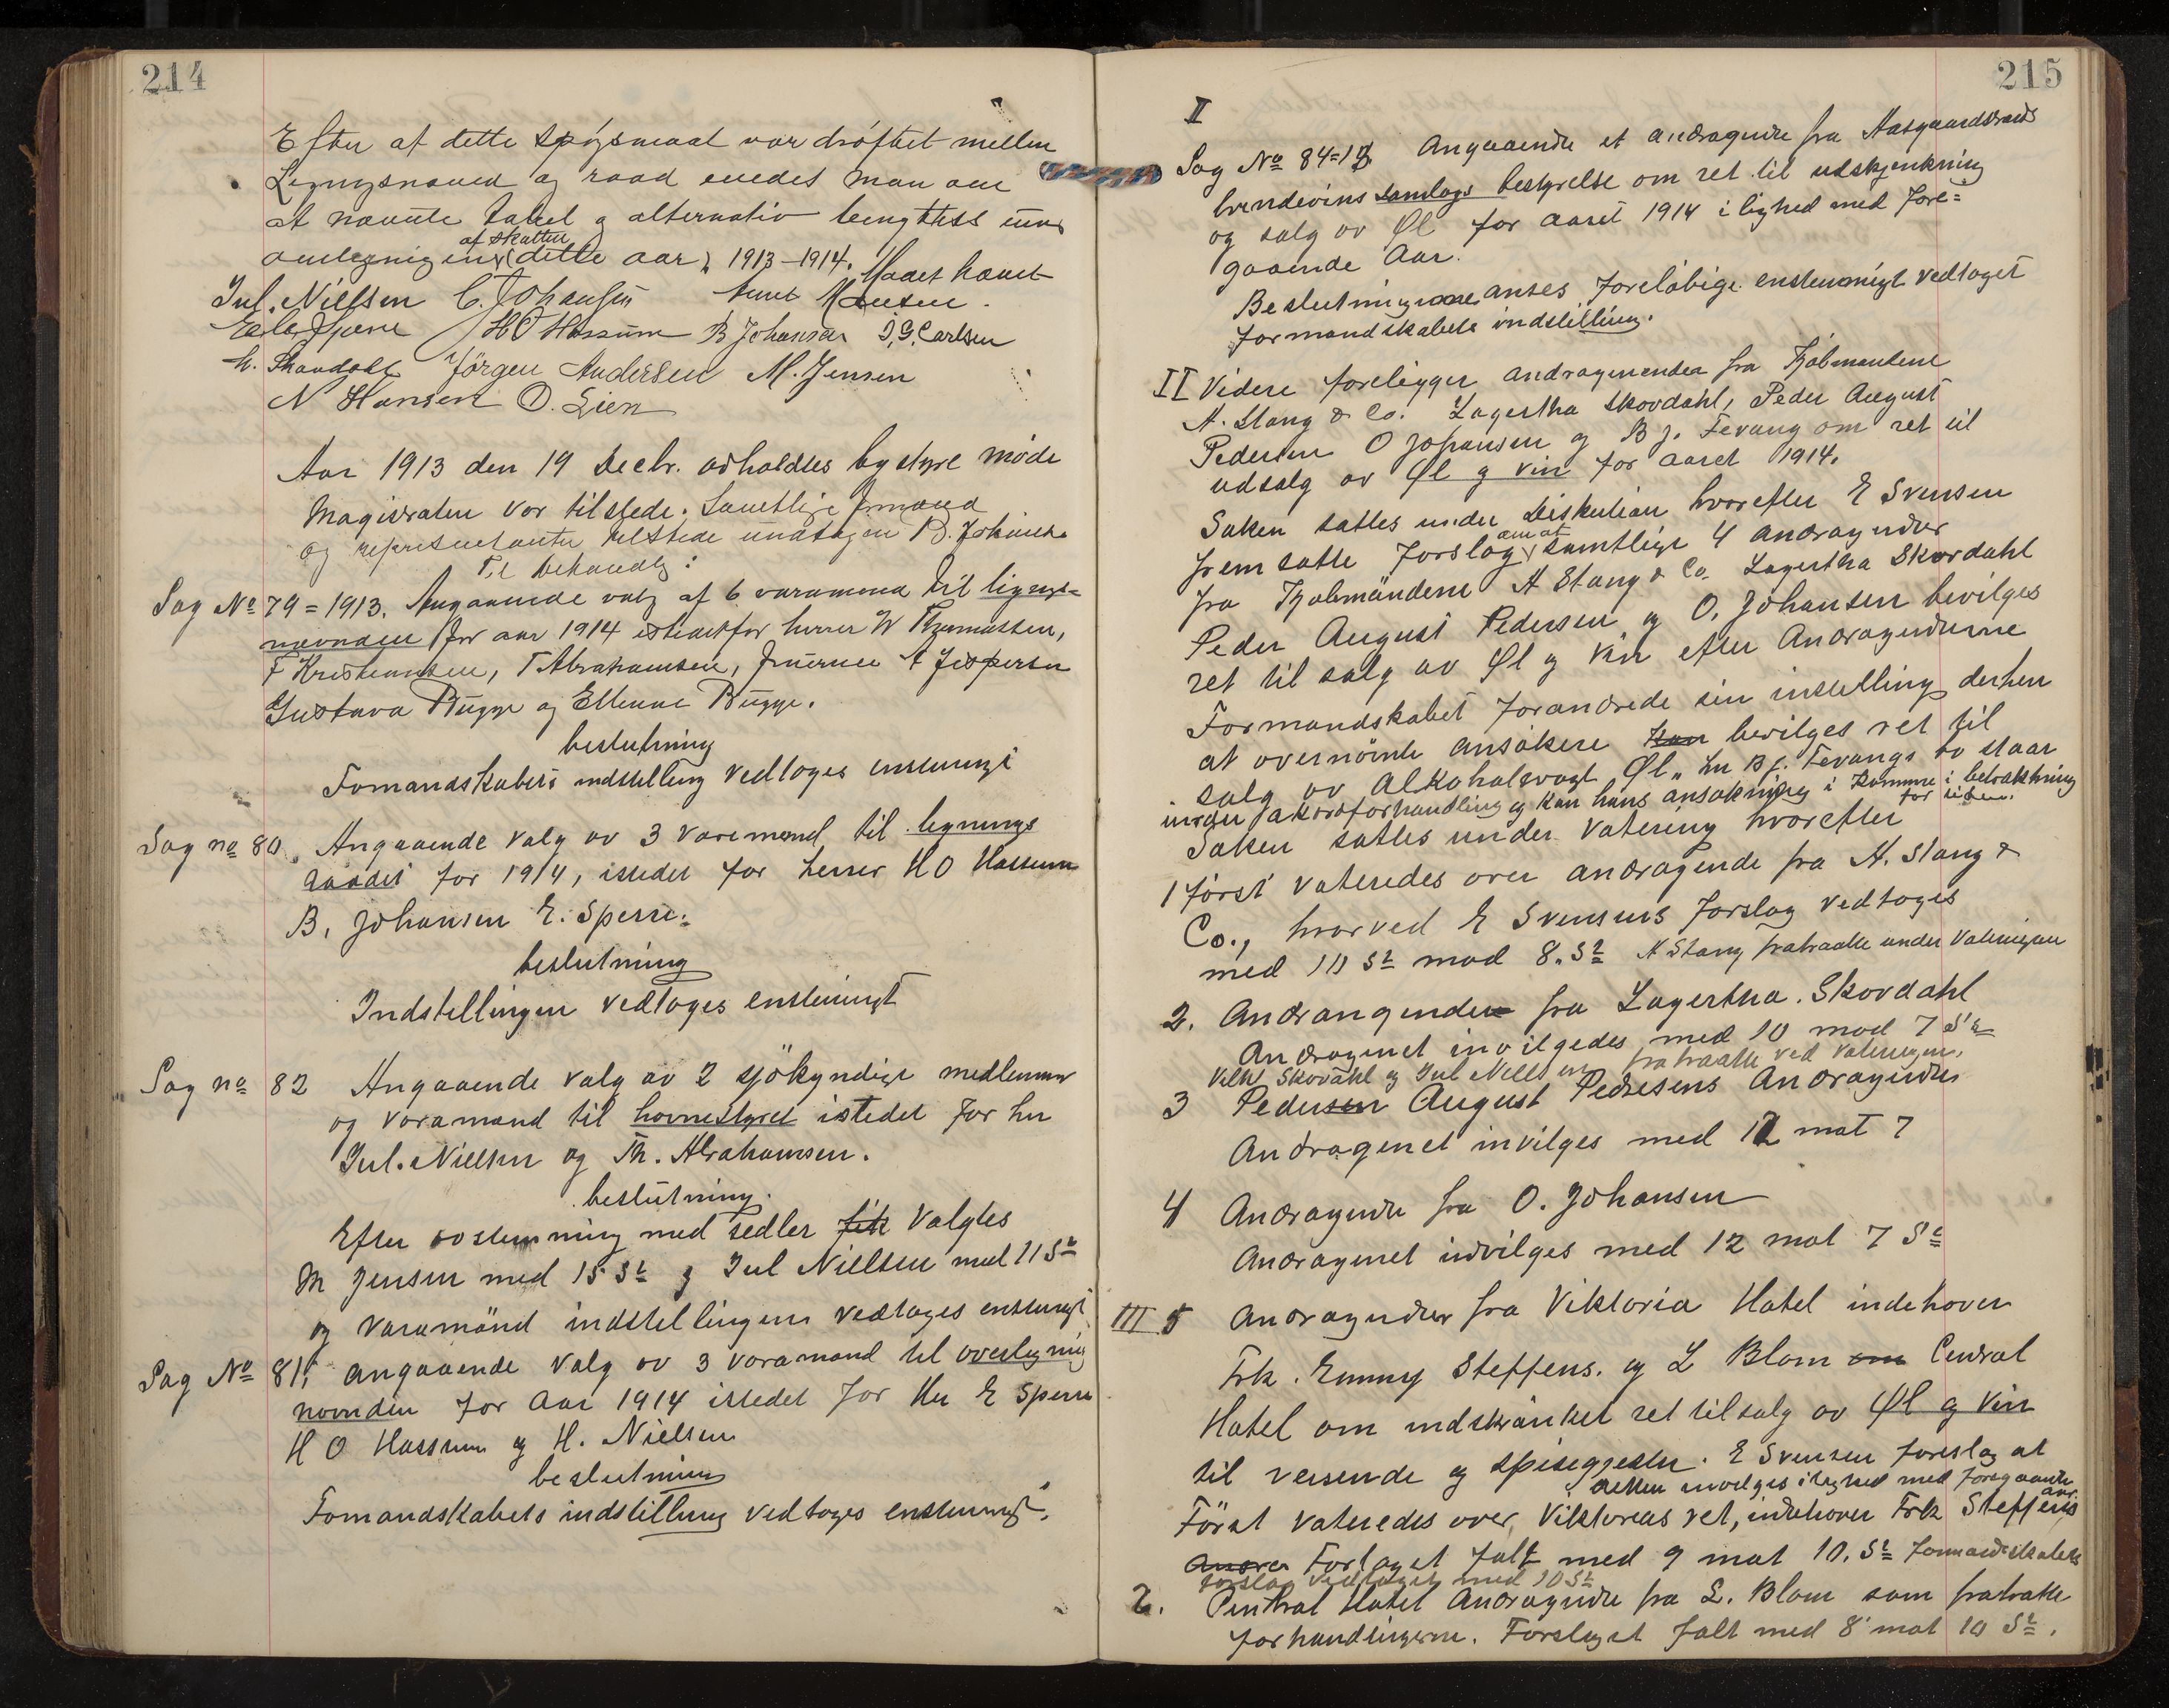 214
Efter at dette spörsmaal var dröftet mellem
Ligningsnævnd og raad enedes man om
at nævnte tabel og alternativ benyttes
af skatten
dette aar 1913-1914. Mødet hævet
Jul. Nielsen C. Johansen
H O Hassum B Johansen J. G. Carlsen
Jörgen Andersen M. Jensen
N Hansen O. Lien
Aar 1913 den 19 Decbr. avholdtes bystyre möde
Magistraten var tilstede. Samtlige formænd
og representanter tilstede undtagen B. Johansen
Til behandlg:
Sag No 79=1913. Angaaende valg af 6 varamænd til lignings=
nævnden for aar 1914 istedetfor herrer W Thommassen,
F Kristiansen, T Abrahamsen, fruerne A Jespersen
Gustava Bugge og Ellenne Bugge.
beslutning
Fomandskabets indstilling vedtoges enstemigt
Sag no 80. Angaaende valg av 3 varamænd til lignings
raadet for 1914, istedet for herrer H O Hassum
B. Johansen E. Sperre.
beslutning
Indstillingen vedtoges enstemigt
Sag no 82 Angaaende valg av 2 sjökyndige medlemmer
og varamænd til havnestyret istedet for hr
Jul. Nielsen og Th. Abrahamsen.
beslutning.
Efter avstemning med sedler fik valgtes
M Jensen med 15 St og Jul Nielsen med 11 St
og varamænd indstellingens vedtoges enstemigt
Sag No 81, angaaende valg av 3 varamænd til overligning
nævnden for aar 1914 istedet for Hr E Sperre
H O Hassum og H. Nielsen
beslutning
Fomandskabets indstilling vedtoges enstemigt.
215
I
Sag No 84=13 Angaaende et andragende fra Aasgaardstrands
brendevins samlags bestyrelse om ret til udskjenkning
og salg av Øl for aaret 1914 i lighed med fore=
gaaende Aar.
Beslutning anses foreløbige enstemmigt vedtaget
formandskabets indstilling.
II Videre foreligger andragender fra Kjøbmændene
A. Stang & Co. Lagertha Skovdahl, Peder August
Pedersen O Johansen og B J. Tevang om ret til
udsalg av Øl og vin for aaret 1914.
Saken sattes under Diskution hvorefter E Svensen
om at
fremsatte forslag samtlige 4 andragender
fra Kjøbmændene A Stang & Co. Lagertha Skovdahl
Peder August Pedersen og O. Johansen bevilges
ret til salg av Øl og Vin efter Andragenderne
Formandskabet forandrede sin instelling derhen
at overnömte ansökere kan bevilges ret til
salg av Alkoholsvagt Øl. Hr B J. Tevangs bo staar
under akordforhandling og kan hans ansøkning i komme i betraktning
for tiden.
Saken sattes under Votering hvorefter
1 först voteredes over andragende fra A. Stang &
Co., hvorved E Svensens forslag vedtoges
med 10 St mod 8. St A Stang fratraatte under Voteringen
2. Andrangenden fra Lagertha Skovdahl
Andragenet invilgedes med 10 mod 7 St
Vilh Skovdahl og Jul Nielsen fratraatte ved Voteringen.
3 Pedersen August Pedersens Andragender
Andragenet invilges med 12 mot 7
4 Andragende fra O. Johansen
Andragenet indvilges med 12 mot 7 St
III 5 Andragender fra Viktoria Hotel indehaver
Frk. Emmy Steffens. og L Blom om Central
Hotel om indskränket ret til salg av Øl og Vin
til reisende og spisegjester. E Svensen foreslog at
retten invilges i lighed med foregaaende
aar.
Först voteredes over Viktorias ret, indehaver Frk Steffens
Andra Forlaget falt med 9 mot 10. St formandskabets
forslag vedtaget med 10 St
2. Central Hotel Andragende fra L. Blom som fratratte
forhandlingerne. Forslaget falt med 8 mot 10 St.